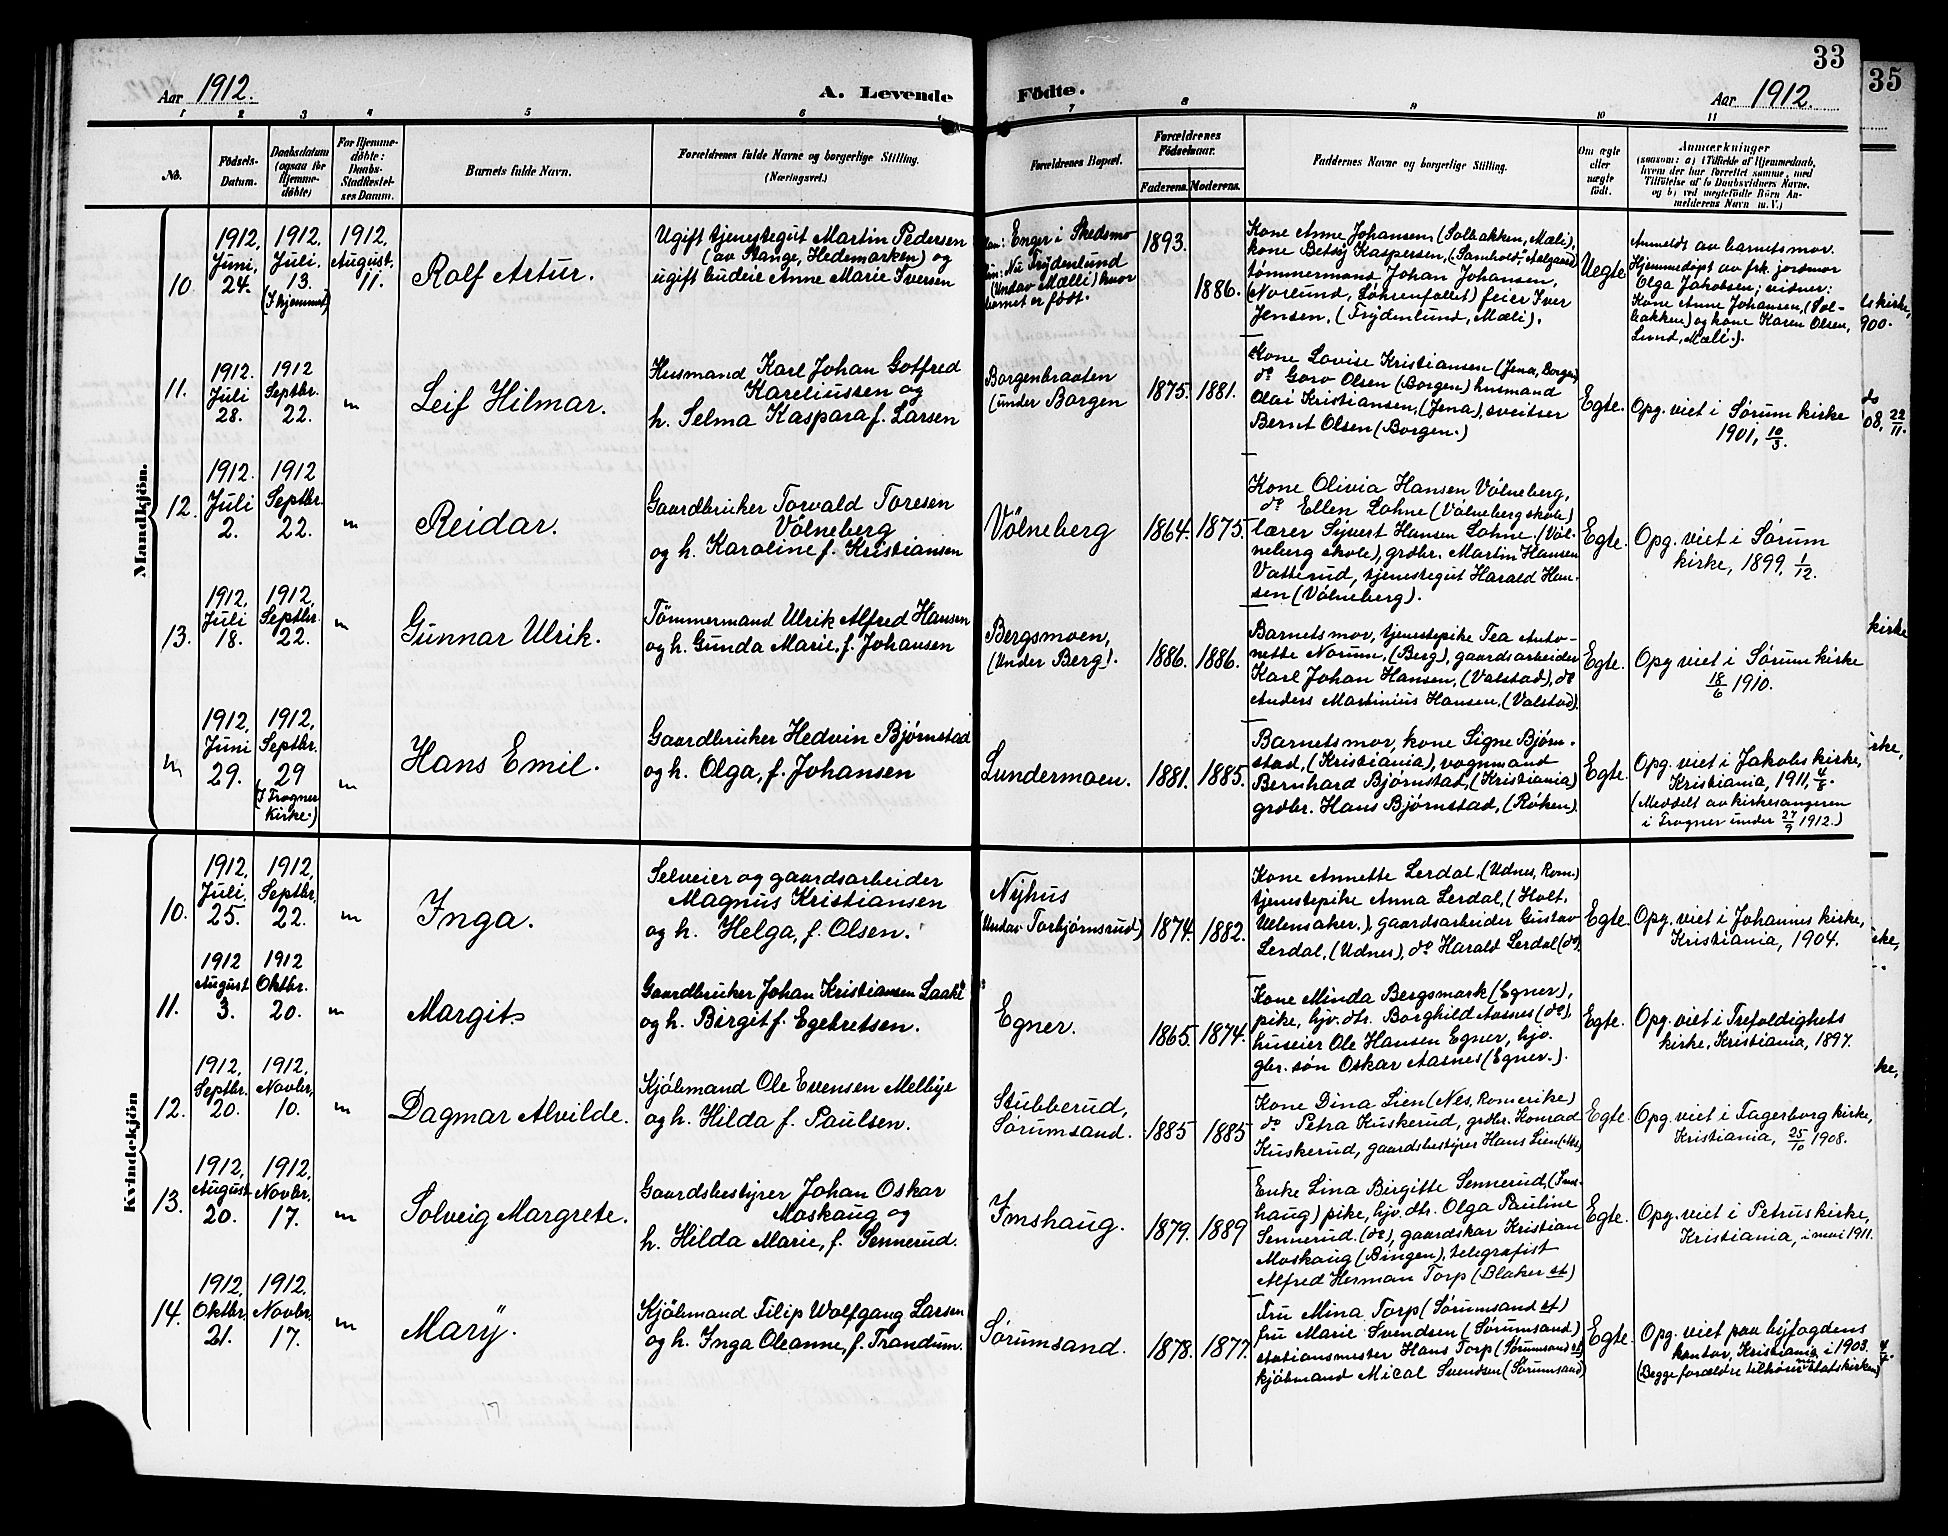 33
35
Aar 1912.
A. Levende
Födte.
Aar 1912.
1 2 3 4 5 6 7 8 9 10 11
No.
Födsels-
Datum.
Daabsdatum
(ogsaa for
Hjemme-
döbte)
For Hjemme-
döbte:
Daabs-
Stadfestel-
ses Datum.
Barnets fulde Navn.
Forældrenes fulde Navne og borgerlige Stilling.
(Næringsvei.)
Forældrenes Bopæl.
Forældrenes
Födselsaar.
Faderens. Moderens.
Faddernes Navne og borgerlige Stilling.
Om ægte
eller
uægte
födt.
Anmærkninger
(saasom: a) i Tilfælde af Hjemmedaab,
hvem der har forrettet samme, med
Tilföielse af to Daabsvidners Navne,
og b) ved uegtefödte Börn An-
melderens Navn m. V.)
Mandkjön.
10.
1912,
Juni,
24.
1912,
Juli.
13.
(I hjemmet)
1912,
August.
11.
Rolf Artur.
Ugift tjenestegut Martin Pedersen
(av Stange, Hedemarken) og
ugift budeie Anne Marie Iversen
Enger i Skedsmo
Nu Frydenlund
(Undav Mæli) hvor
barnet er født.
1893.
1886.
Kone Anne Johansen, (Solbakken, Mæli),
kone Betsy Kaspersen,
tømmermand Johan Johansen,
(Norlund, Søhrenfallet) feier Iver
Jensen, (Frydenlund, Mæli).
Uegte
Anmeldt av barnets mor.
Hjemmedøpt av frk. jordmor
Olga Jakobsen; vidner:
Kone Anne Johansen, (Sol-
bakken) og kone Karen Olsen,
Lund, Mæli.).
11.
1912.
Juli
28.
1912
Septbr.
22.
"
Leif Hilmar.
Husmand Karl Johan Gotfred
Kareliussen og
h. Selma Kaspara f. Larsen
Borgenbraaten
(under Borgen
1875.
1881.
Kone Lovise Kristiansen (Jena, Borgen)
do Goro Olsen (Borgen) husmand
Olai Kristiansen, (Jena), sveitser
Bernt Olsen (Borgen.)
Egte.
Opg. viet i Sørum kirke
1901, 10/3.
12.
1912.
Juli
2.
1912
Septbr.
22.
"
Reidar.
Gaardbruker Torvald Toresen
Vølneberg
og h. Karoline f. Kristiansen
Vølneberg
1864.
1875.
Kone Olivia Hansen Vølneberg,
do Ellen Lohne (Vølneberg skole)
lærer Syvert Hansen Lohne (Vøl-
neberg skole), grdbr. Martin Hansen
Vatterud, tjenestegut Harald Han-
sen (Vølneberg).
Egte.
Opg. viet i Sørum
kirke, 1899, 1/12.
13.
1912,
Juli
18.
1912,
Septbr.
22.
"
Gunnar Ulrik.
Tømmermand Ulrik Alfred Hansen
og h. Gunda Marie, f. Johansen
Bergsmoen,
(Under Berg).
1886.
1886.
Barnets mor, tjenestepike Tea Anto-
nette Norum, (Berg), gaardsarbeider
Karl Johan Hansen, (Valstad), do
Anders Martinius Hansen, (Valstad).
Egte.
Opg viet i Sørum kirke
18/6 1910.
"
1912,
Juni
29.
1912,
Septbr.
29
(I Frogner
kirke.)
"
Hans Emil.
Gaardbruker Hedvin Bjørnstad
og h. Olga, f. Johansen
Lundermoen.
1881.
1885.
Barnets mor, kone Signe Bjørn-
stad, (Kristiania), vognmand
Bernhard Bjørnstad, (Kristiania)
grdbr. Hans Bjørnstad, (Røken).
Egte.
Opg. viet i Jakobs kirke,
Kristiania, 1911,
(Meddelt av kirkesangeren
i Frogner under 27/9 1912.)
Kvindekjön
10.
1912,
Juli
25.
1912,
Septbr.
22.
"
Inga.
Selveier og gaardsarbeider
Magnus Kristiansen
og h. Helga, f. Olsen.
Nyhus
(Undav Torbjørnsrud)
1874.
1882.
Kone Annette Lerdal, (Udnes, Rom.)
tjenestepike Anna Lerdal, (Holt,
Ullensaker.), gaardsarbeider Gustav
Lerdal, (Udnes), do Harald Lerdal (do)
Egte.
Opg. viet i Johannes kirke,
Kristiania, 1904.
11.
1912
August
3.
1912
Oktbr.
20.
"
Margit.
Gaardbruker Johan Kristiansen
og h. Birgit f. Egebretsen.
Egner.
1865.
1874.
Kone Minda Bergsmark (Egner),
pike, hjv. dtr. Borghild Aasnes (do),
huseier Ole Hansen Egner, hjv.
gbr. søn Oskar Aasnes (Egner.).
Egte.
Opg. viet i Trefoldighets
kirke, Kristiania, 1897.
12.
1912,
Septbr.
20.
1912,
Novbr.
10.
"
Dagmar Alvilde.
Kjøbmand Ole Evensen Melbye
og h. Hilda f. Paulsen.
Stubberud,
Sørumsand.
1885
1885
Kone Dina Lien (Nes, Romerike)
do Petra Kuskerud, grdbr. Konrad
Kuskerud, gaardsbestyrer Hans Lien (Nes)
Egte.
Opg. viet i Fagerborg kirke,
Kristiania, 25/10 1908.
13.
1912,
August
20.
1912,
Novbr.
17.
"
Solveig Margrete.
Gaardsbestyrer Johan Oskar
Moskaug og
h. Hilda Marie, f. Sennerud.
Imshaug.
1879.
1889
Enke Lina Birgitte Sennerud, (Ims-
haug) pike, hjv. dtr. Olga Pauline
Sennerud. (do), gaardskar Kristian
Moskaug (Bingen), telegrafist
Alfred Herman Torp (Blaker st)
Egte.
Opg. viet i Petrus kirke,
Kristiania, i mai 1911.
14.
1912,
Oktbr.
21.
1912,
Novbr.
17.
"
Mary.
Kjøbmand Filip Wolfgang Larsen
og h. Inga Oleanne, f. Trandum.
Sørumsand.
1878.
1877.
Fru Mina Torp (Sørumsand st)
fru Marie Svendsen (Sørumsand)
stationsmester Hans Torp (Sørumsand st)
kjøbmand Mical Svendsen (Sørumsand)
Egte.
Opg. viet paa byfogdens
kontor, Kristiania i 1903.
(Begge forældre tilhører nu statskirken)
kirke,
900.
do
08, 22/11.
kirke
kirke,